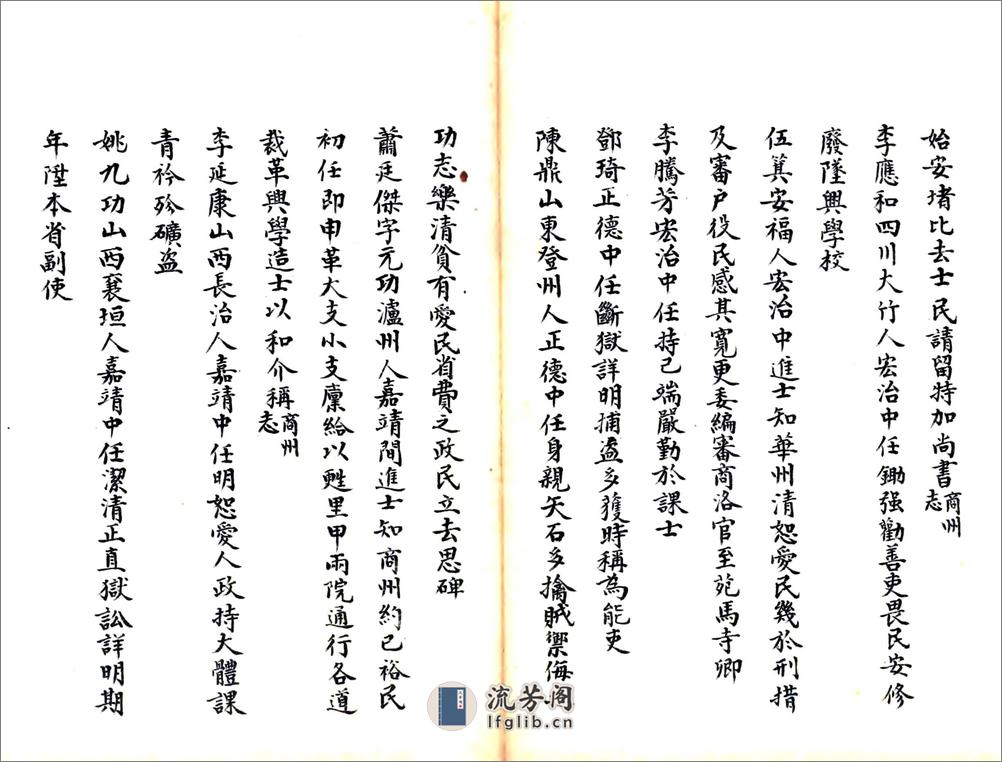 始安堵比去士民請留特加尚書商州志
李應和四川大竹人宏治中任鋤强勸善吏畏民安修
廢墜興學校
伍箕安福人宏治中進士知華州清恕愛民幾於刑措
及審户役民感其寬更委編審商洛官至苑馬寺卿
李騰芳宏治中任持己端嚴勤於課士
鄧琦正德中任斷獄詳明捕盗多獲時稱為能吏
陳鼎山東登州人正德中任身親矢石多擒賊禦侮
功志樂清貧有愛民省費之政民立去思碑
蕭廷傑字元功瀘州人嘉靖間進士知商州約己裕民
初任即申革大支小支廩給以甦里甲兩院通行各道
裁革興學造士以和介稱商州志
李延康山西長治人嘉靖中任明恕愛人政持大體課
青衿殄礦盗
姚九功山西襄垣人嘉靖中任潔清正直獄訟詳明期
年陞本省副使
流芳阁
lfglib.cn